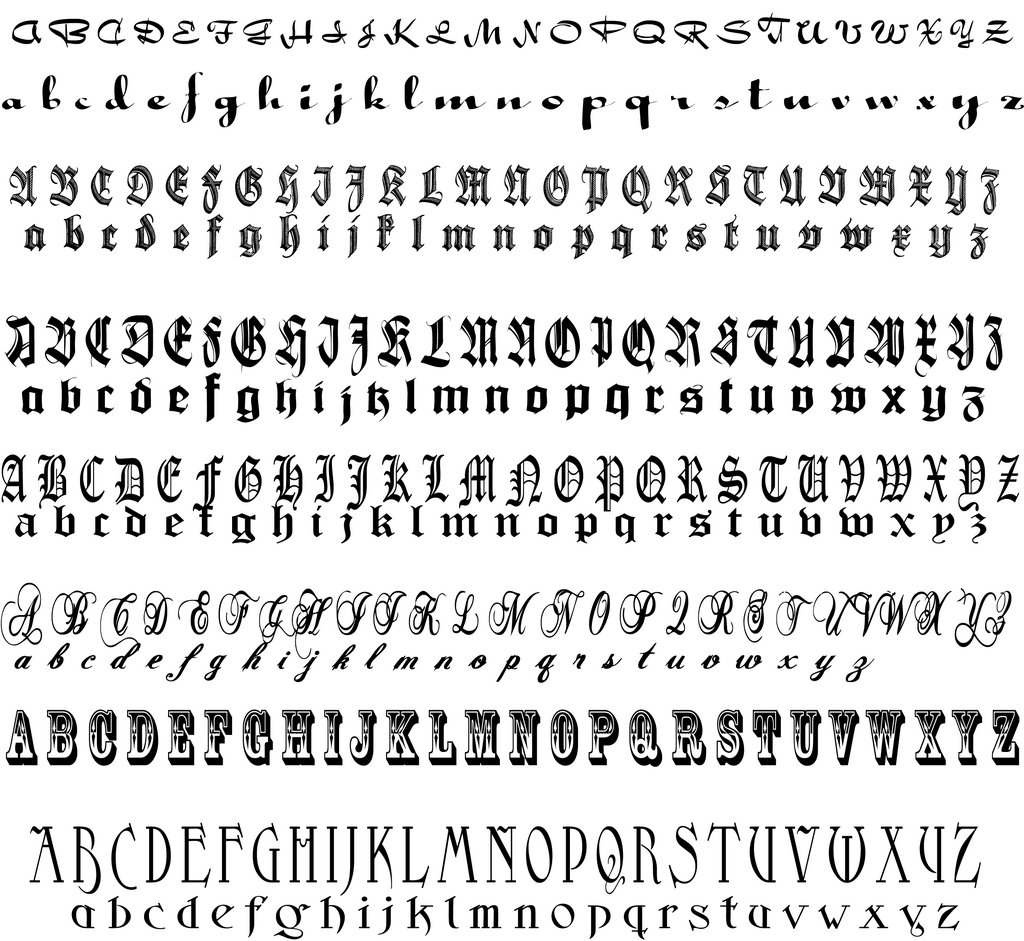 A B C D E F G H I J K L M N O P Q R S T U V W X Y Z
a b c d e f g h i j k l m n o p q r s t u v w x y z
A B C D E F G H I J K L M N O P Q R S T U V W X Y Z
a b c d e f g h i j k l m n o p q r s t u v w x y z
A B C D E F G H I J K L M N O P Q R S T U V W X Y Z
a b c d e f g h i j k l m n o p q r s t u v w x y z
A B C D E F G H I J K L M N O P Q R S T U V W X Y Z
a b c d e f g h i j k l m n o p q r s t u v w x y z
A B C D E F G H I J K L M N O P Q R S T U V W X Y Z
a b c d e f g h i j k l m n o p q r s t u v w x y z
A B C D E F G H I J K L M N O P Q R S T U V W X Y Z
A B C D E F G H I J K L M N O P Q R S T U V W X Y Z
a b c d e f g h i j k l m n o p q r s t u v w x y z